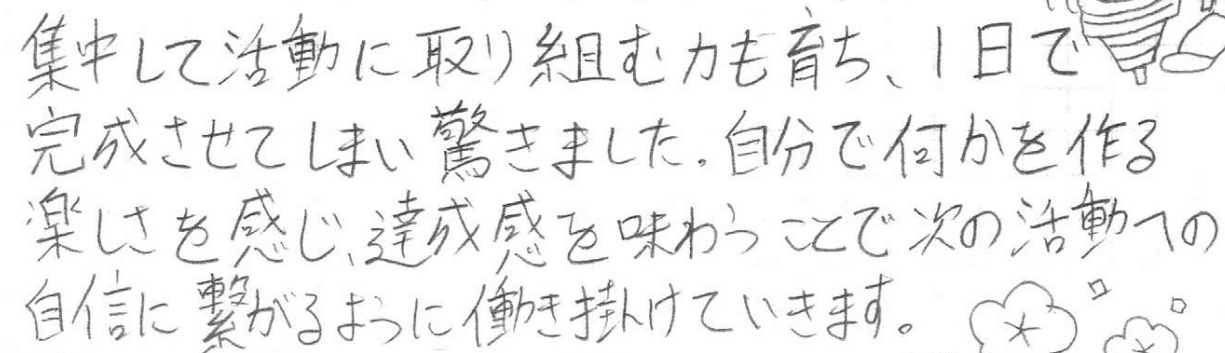 集中して活動に取り組む力も育ち、1日で
完成させてしまい驚きました。自分で何かを作る
楽しさを感じ、達成感を味わうことで次の活動への
自信に繋がるように働き掛けていきます。